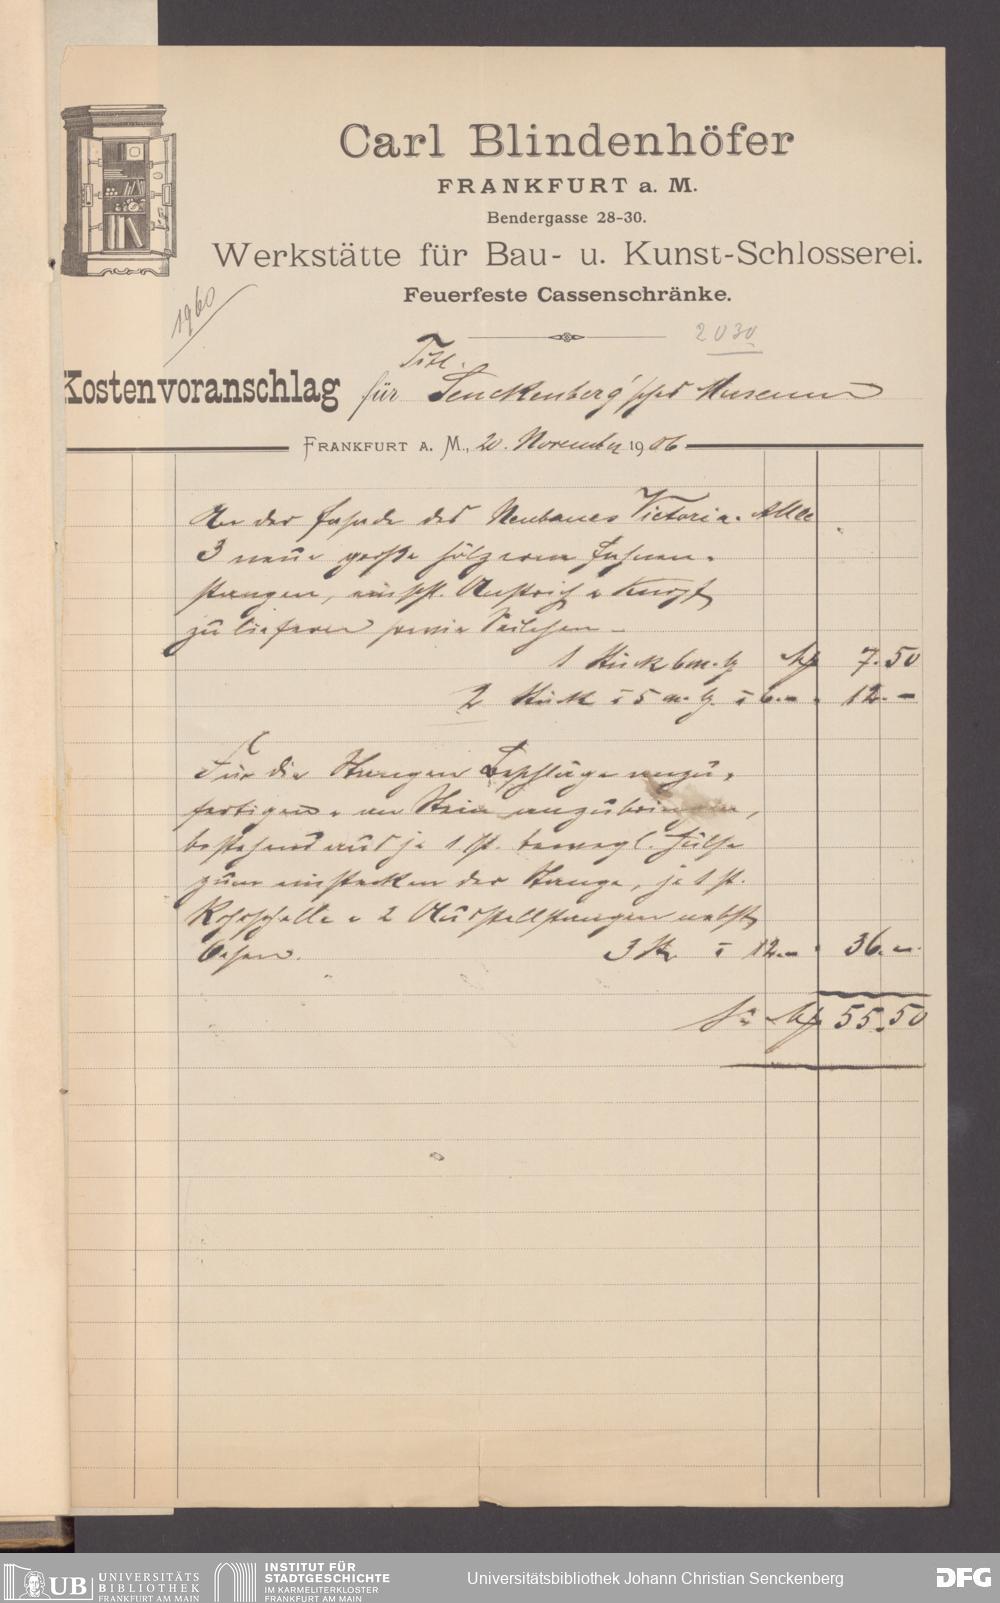 Carl Blindenhöfer
FRANKFURT a. M.
Bendergasse 28-30.
Werkstätte für Bau- u. Kunst-Schlosserei.
Feuerfeste Cassenschränke.
1960
2030
Titl.
Kostenvoranschlag für Senckenberg'sches Museum
FRANKFURT A. M., 20. November 1906
An der Façade des Neubaues Victoria-Allee
3 neue große hölzerne Fahnen-
stangen, Anstrich & Knopf
zu liefern sowie
1 Stück 6 m. lg M 7.50
2 Stück à 5 m. lg. à 6.- 12.-
Für die Stangen Beschläge anzu-
fertigen & am Stein anzubringen,
bestehend aus je 1 St. bewegl. Hülse
zum einstecken der Stange, je 1 St.
Rohrschelle & 2 nebst
Ösen. 3 St. à 12.- 36.-
Sa M 55.50
UB UNIVERSITÄTS
BIBLIOTHEK
FRANKFURT AM MAIN
INSTITUT FÜR
STADTGESCHICHTE
IM KARMELITERKLOSTER
FRANKFURT AM MAIN
Universitätsbibliothek Johann Christian Senckenberg
DFG